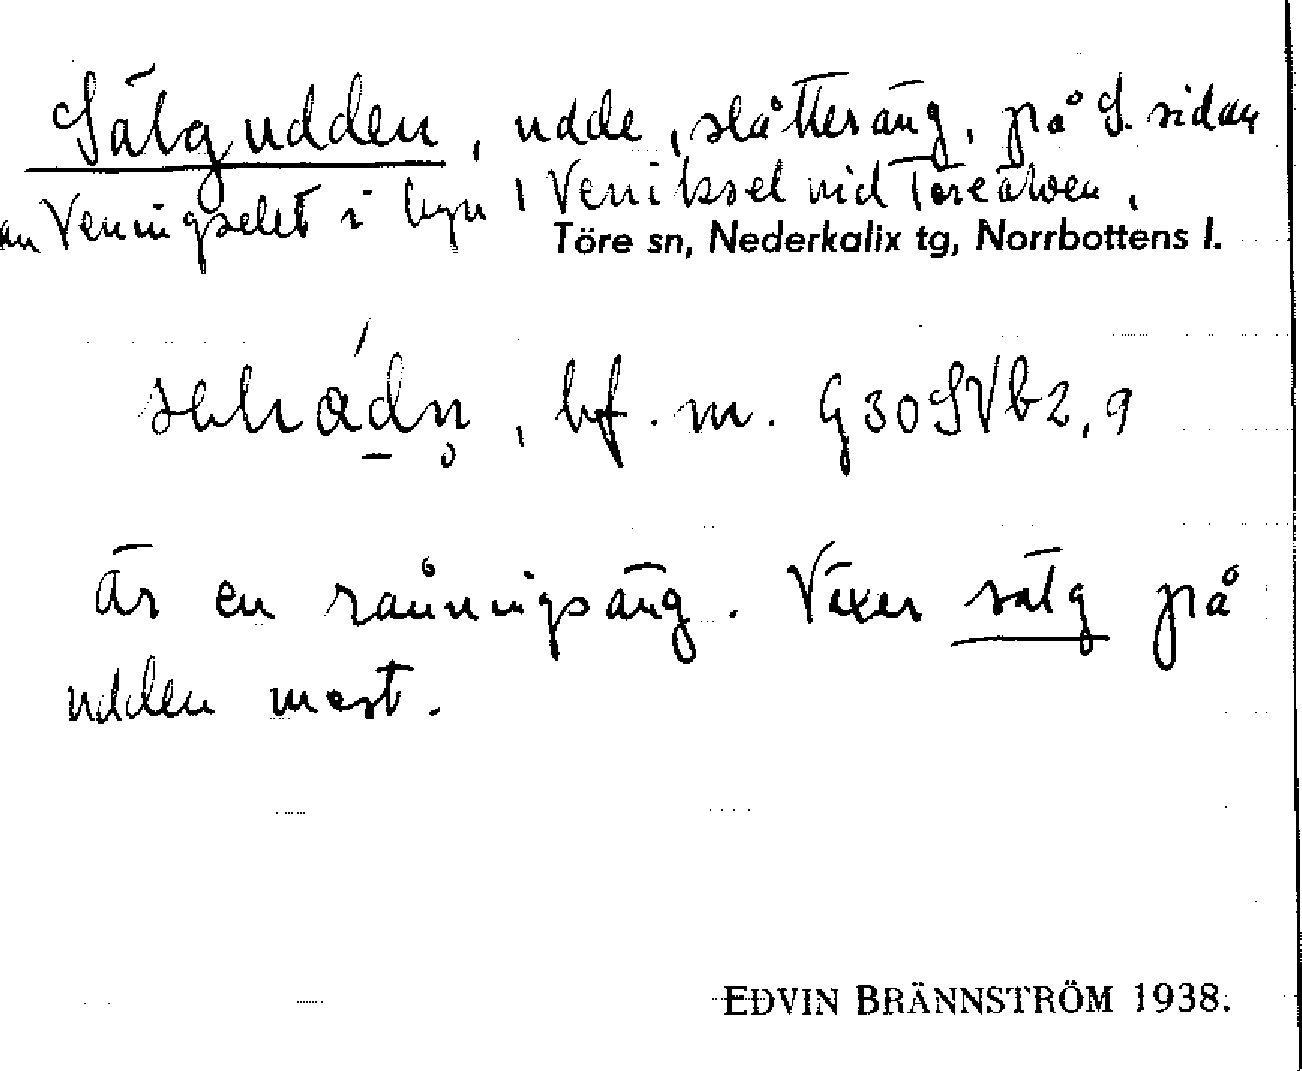 Sälgudden, udde, slåtteräng, på S. sidan
av Veningselet i byn Veniksel vid Töreälven.
Töre sn, Nederkalix tg, Norrbottens l.
bf. m. G30SVb2,9
är en råningsäng. Växer sälg på
udden mest.
EDVIN BRÄNNSTRÖM 1938.